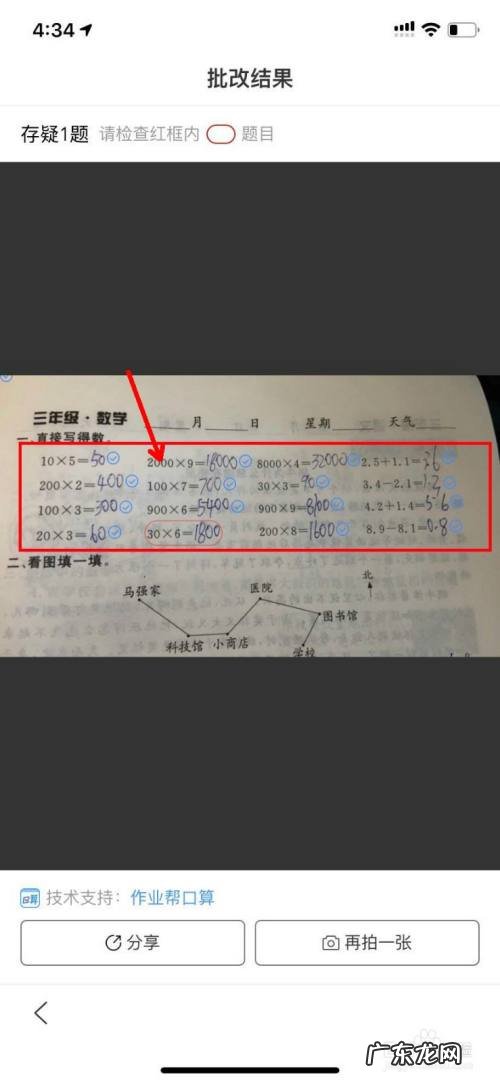 4:34
批改结果
存疑1题 请检查红框内 题目
三年级·数学 ____月____日 星期____ 天气____
一、直接写得数。
10×5=50 2000×9=18000 8000×4=32000 2.5+1.1=3.6
200×2=400 100×7=700 30×3=90 3.4-2.1=1.3
100×3=300 900×6=5400 900×9=8100 4.2+1.4=5.6
20×3=60 30×6=1800 200×8=1600 8.9-8.1=0.8
二、看图填一填。
北
马强家 医院
图书馆
科技馆 小商店
学校
口算 技术支持：作业帮口算
分享 再拍一张
广东龙网